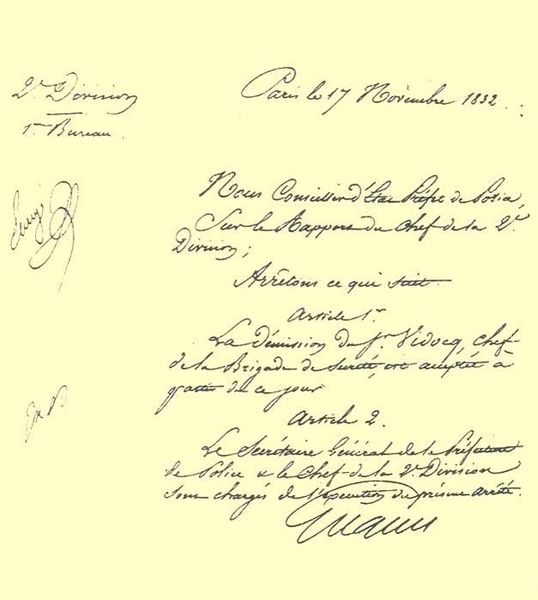 2e Division
1er Bureau
Paris le 17 Novembre 1832
Nous Conseiller d'Etat Préfet de Police,
Sur le Rapport du Chef de la 2e
Division;
Arrêtons ce qui suit
Article 1er
La Démission du Sr Vidocq, Chef
de la Brigade de Sureté, est acceptée à
partir de ce jour
Article 2.
Le Secrétaire Général de la Préfecture
de Police & le Chef de la 2e Division
sont chargés de l'exécution du présent arrêté.